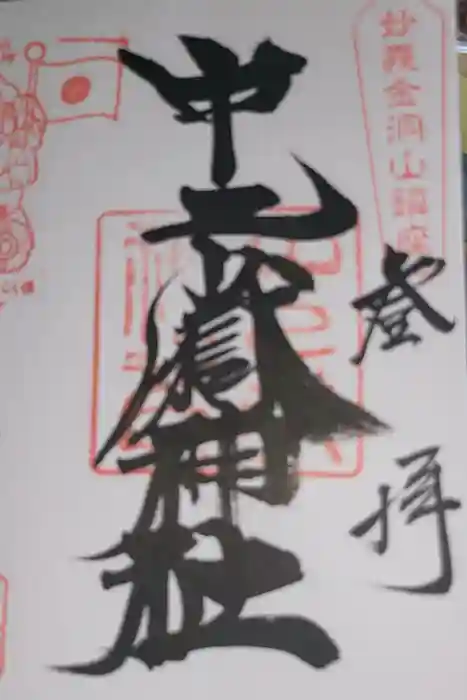 妙義金洞山鎮座
登拝
中之嶽神社